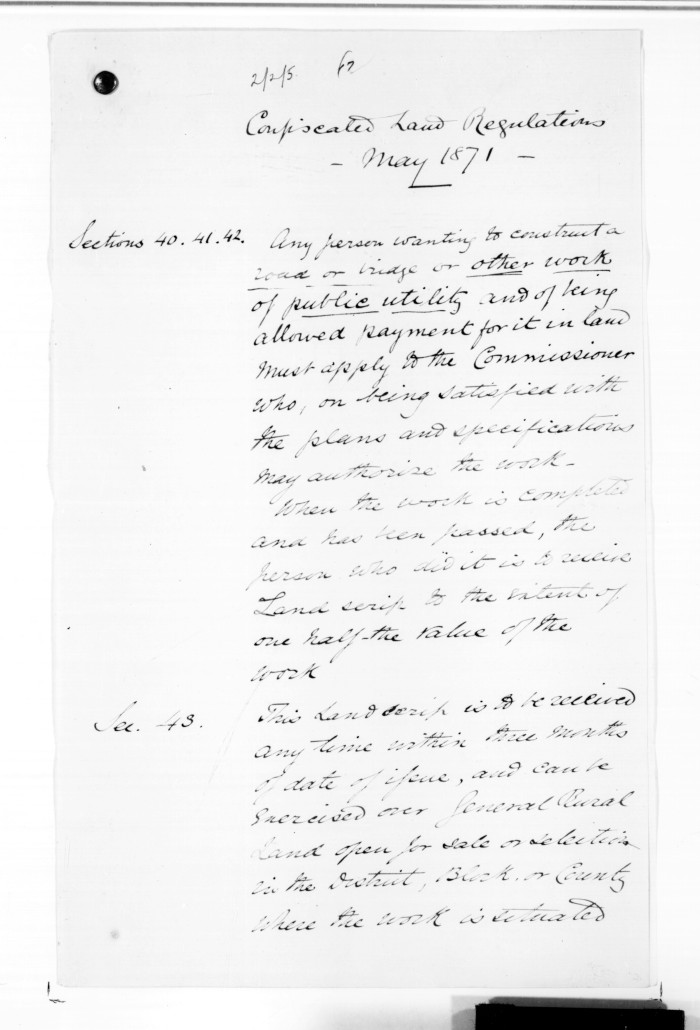 2/2/5. 62
Confiscated Land Regulations
- May 1871 -
Sections 40. 41. 42. Any person wanting to construct a
road or bridge or other work
of public utility and of being
allowed payment for it in land
must apply to the Commissioner
who, on being satisfied with
the plans and specifications
may authorize the work -
When the work is completed
and has been passed, the
person who did it is to receive
Land scrip to the extent of
one half the value of the
work
Sec. 43. This Land scrip is to be received
any time within three months
of date of issue, and can be
exercised over General Rural
Land open for sale or selection
in the District, Block or County
where the work is situated